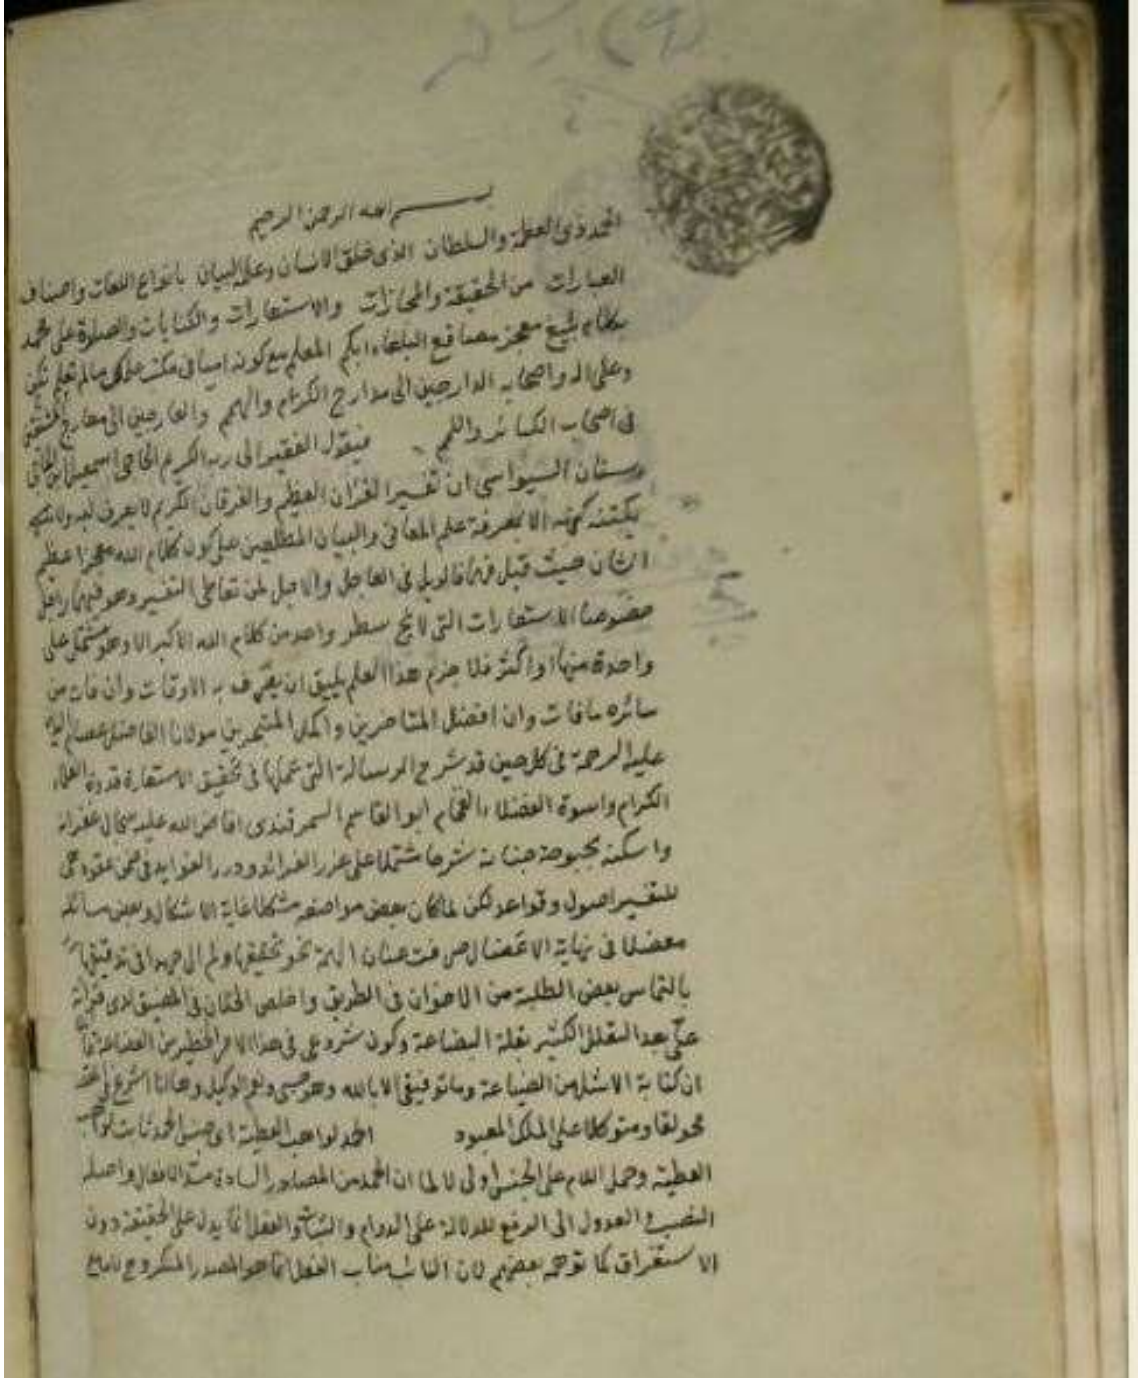 بسم الله الرحمن الرحيم
الحمد لذى العظمة والسلطان الذى خلق الانسان وعلمه البيان بانواع اللغات واصناف
العبارات من الحقيقة والمجازات والاستعارات والكنايات والصلوة على محمد
بكلام بليغ معجز مصاقع البلغاء ابكم المعلم مع كونه اميا فى مكتب علمك ما لم تعلم
وعلى اله واصحابه الدارجين الى مدارج الكرام والهمم والعارجين الى معارج
فى اصحاب الكبائر واللمم فيقول الفقير الى ربه الكريم الحاجى اسمعيل
السيواسى ان تفسير القرآن العظيم والفرقان الكريم لا يعرف
يكتنه كنهه الا بمعرفة علم المعانى والبيان المطلعين على كون كلام الله معجزا عظيم
الشان حيث قيل فالويل فى العاجل والاجل لمن تعاطى التفسير وهو فيهما راجل
خصوصا الاستعارات التى سطر واحد من كلام الله الاكبر الا وهو مشتمل على
واحدة منها او اكثر فلا جرم هذا العلم يليق ان يصرف به الاوقات وان فات من
سائره ما فات وان افضل المتاخرين واكمل المتبحرين مولانا الفاضل عصام
عليه الرحمة فى كل حين قد شرح الرسالة التى عملها فى تحقيق الاستعارة قدوة العلماء
الكرام واسوة الفضلاء الفخام ابو القاسم السمرقندى افاض الله عليه سجال غفرانه
واسكنه بحبوحة جنانه شرحا مشتملا على غرر الفرائد ودرر الفوايد فى ضمن عقود هى
للتفسير اصول وقواعد لكن لما كان بعض مواضعه مشكلا غاية الاشكال وبعض مسائله
معضلا فى نهاية الاعضال صرفت عنان الهمة نحو تحقيقها ولم ال جهدا فى تدقيقها
بالتماس بعض الطلبة من الاخوان فى الطريق واخلص الخلان فى المضيق لدى قرائته
على بعد التعلل الكثير بقلة البضاعة وكون شروعى فى هذا الامر الخطير من الفضاعة
ان كتابة الاشل من الضياعة وما توفيقى الا بالله وهو حسبى ونعم الوكيل وها انا اشرع فى
محولقا ومتوكلا على الملك المعبود الحمد لواهب العطية اى جنس الحمد ثابت لواهب
العطية وحمل اللام على الجنس اولى لما ان الحمد من المصادر السادة مسد الافعال واصله
النصب والعدول الى الرفع للدلالة على الدوام والثبات والفعل انما يدل على الحقيقة دون
الاستغراق كما توهمه بعضهم لان النائب مناب الفعل انما هو المصدر المنكر